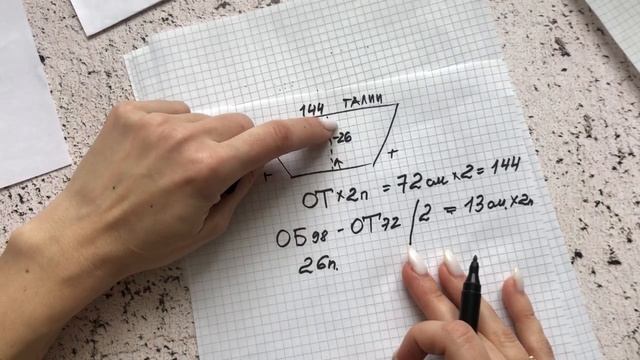 144 ТАЛИИ
-26
+ +
ОТ×2п = 72 см × 2 = 144
ОБ98 - ОТ72 / 2 = 13 см × 2п
26п.